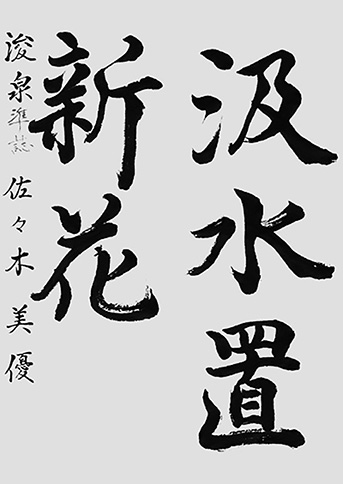 汲水置
新花
浚泉準誌 佐々木美優